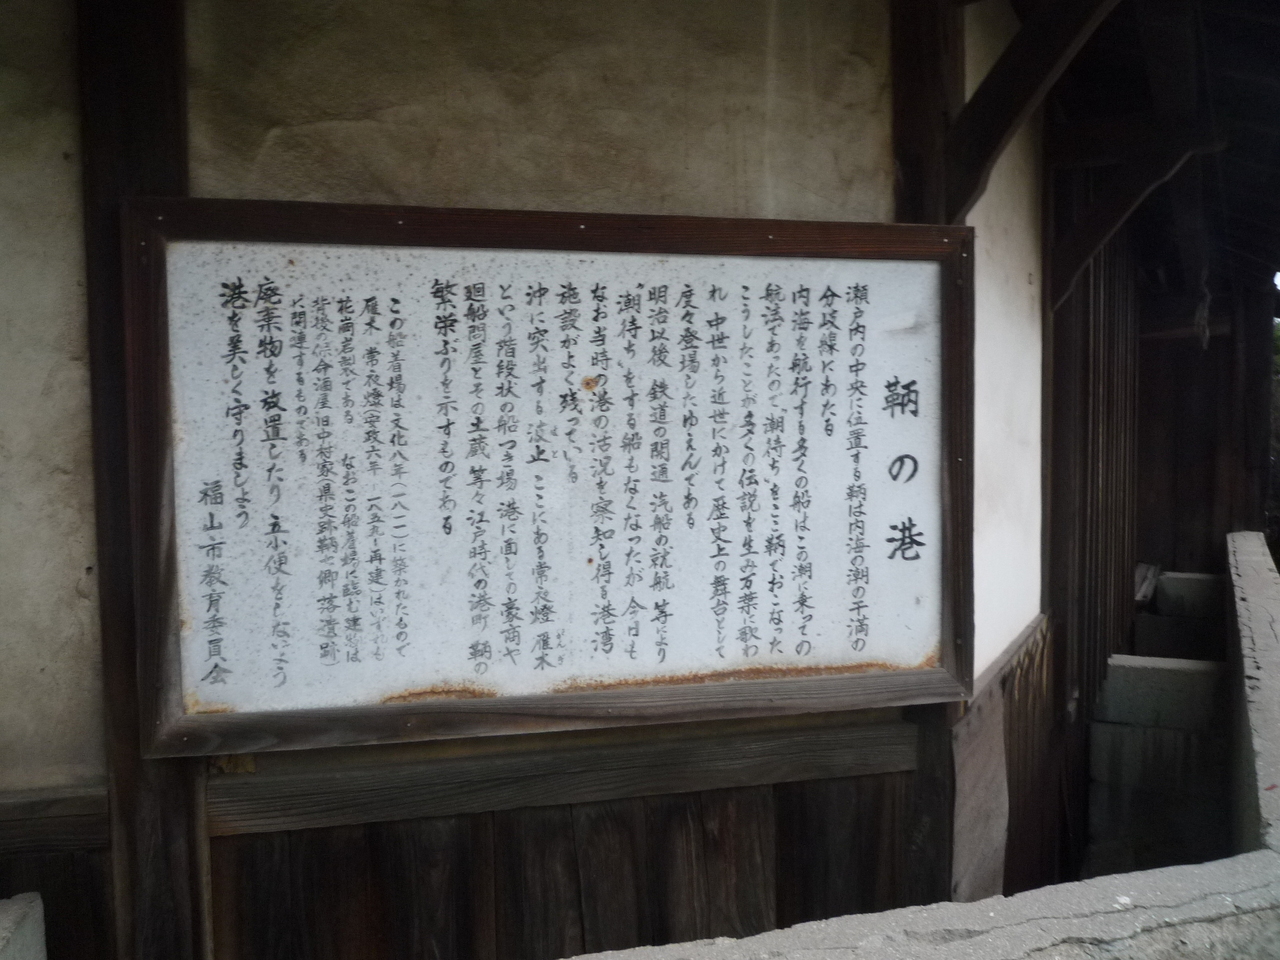 鞆の港
瀬戸内の中央に位置する鞆は内海の潮の干満の
分岐線にあたる
内海を航行する多くの船はこの潮に乗っての
航法であったので〝潮待ち〟をここ鞆でおこなった
こうしたことが多くの伝説を生み万葉に歌わ
れ 中世から近世にかけて歴史上の舞台として
度々登場したゆえんである
明治以後 鉄道の開通 汽船の就航 等により
〝潮待ち〟をする船もなくなったが 今日も
なお当時の港の活況を察知し得る港湾
施設がよく残っている
沖に突出する波止 ここにある常夜燈 雁木
はと
がんぎ
という階段状の船つき場 港に面しての豪商や
廻船問屋とその土蔵 等々江戸時代の港町 鞆の
繁栄ぶりを示すものである
この船着場は文化八年(一八一一)に築かれたもので
雁木 常夜燈(安政六年 一八五九 再建)はいずれも
花崗岩製である なおこの船着場に臨む建物は
背後の保命酒屋旧中村家(県史跡鞆七卿落遺跡)
に関連するものである
廃棄物を放置したり 立小便をしないよう
港を美しく守りましょう
福山市教育委員会